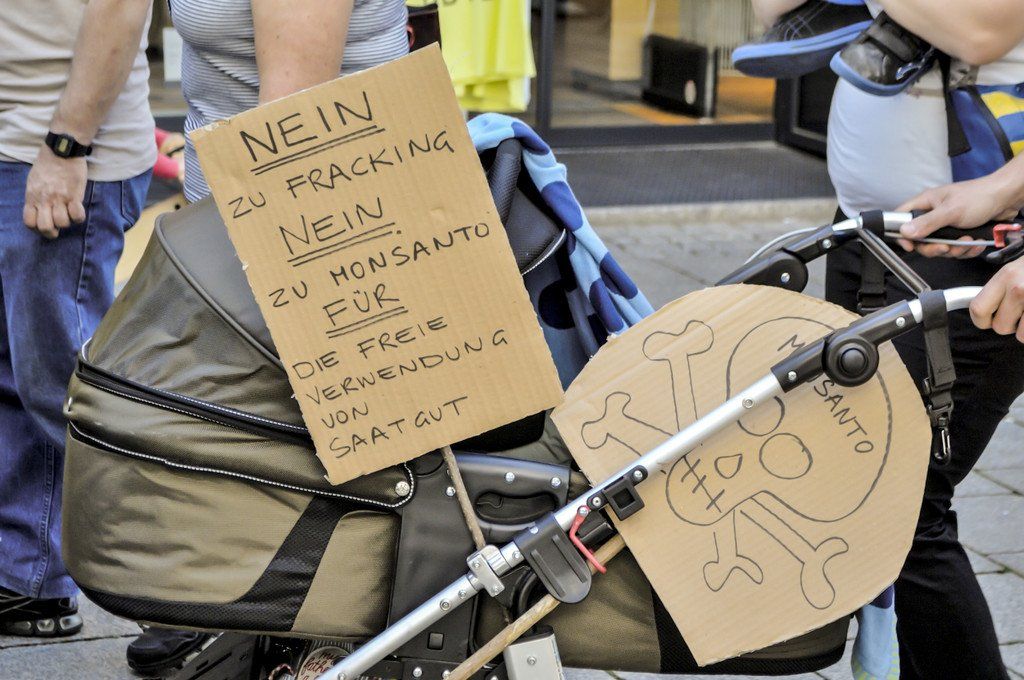 NEIN
ZU FRACKING
NEIN
ZU MONSANTO
FÜR
DIE FREIE
VERWENDUNG
VON
SAATGUT